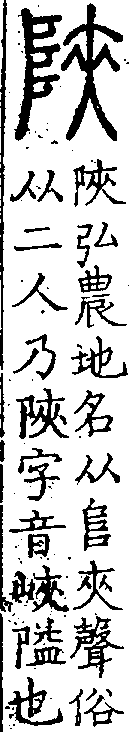 陝
陝弘農地名从𨸏㚒聲俗
从二人乃陜字音峽隘也